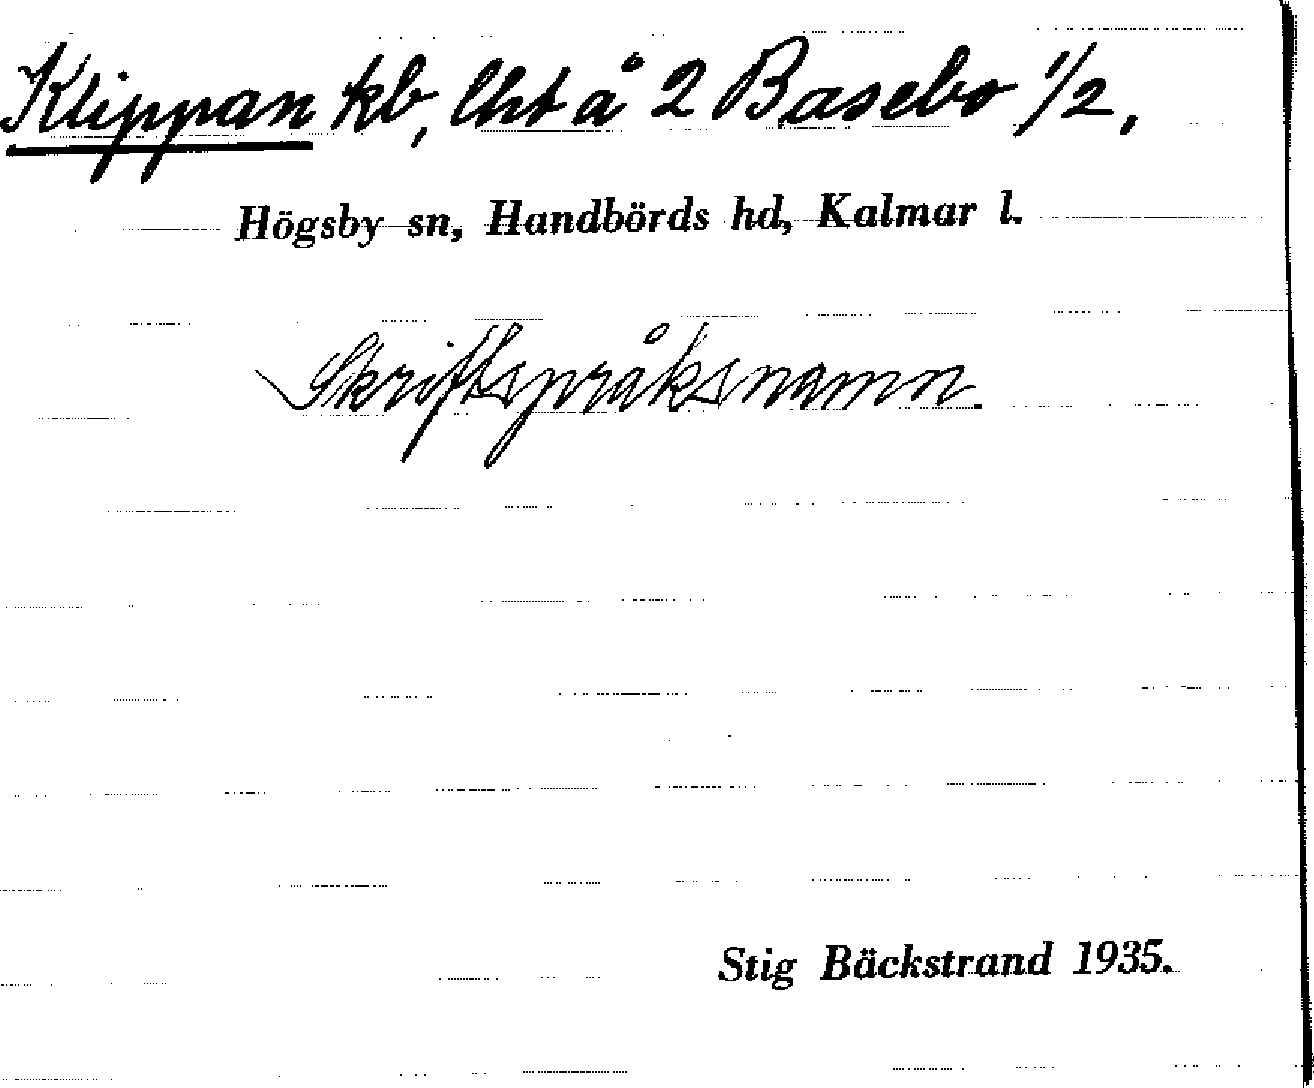 Klippan kb, lht å 2 Basebo 1/2.
Högsby sn, Handbörds hd, Kalmar l.
Skriftspråksnamn.
Stig Bäckstrand 1935.